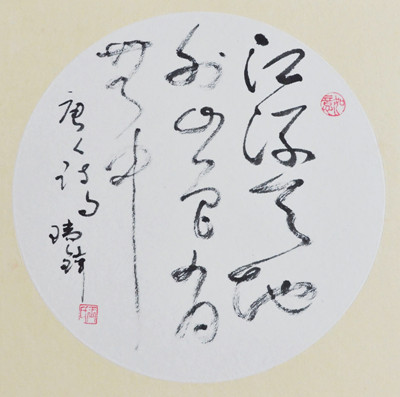 江流天地
外山色有
無中
唐人诗句 瑞